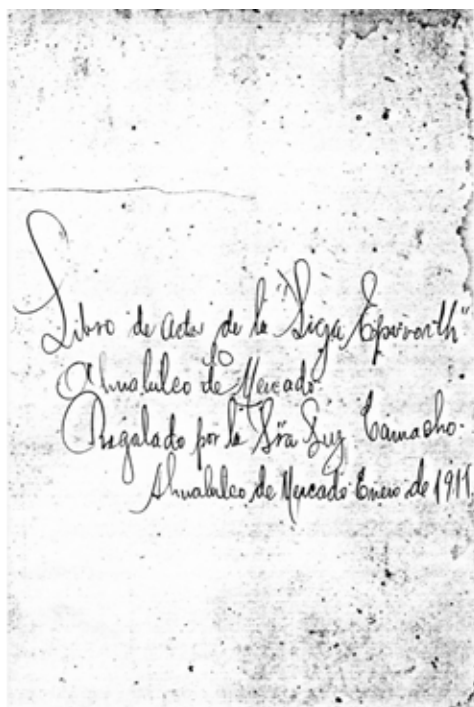 Libro de acta de la "Liga Epworth"
Ahualulco de Mercado.
Regalado por la Sra Luz Camacho.
Ahualulco de Mercado Enero de 1911.